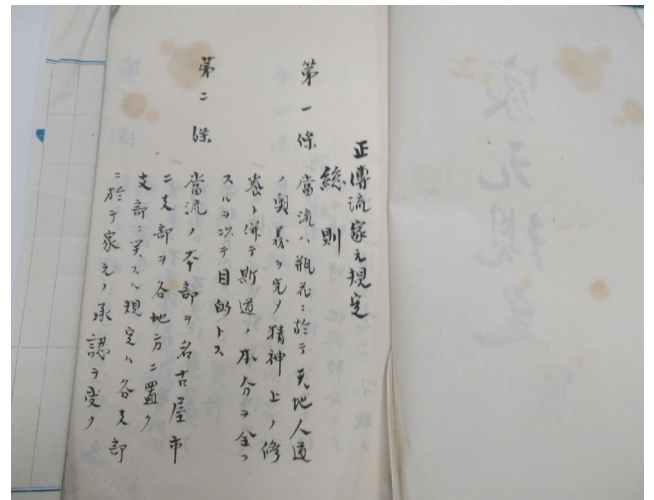 正傳流家元規定
總則
第一條 當流ハ瓶花ニ於テ天地人道
ノ奥義ヲ究メ精神上ノ修
養ト併テ斯道ノ本分ヲ全フ
スルヲ以テ目的トス
第二條 當流ノ本部ヲ名古屋市
ニ支部ヲ各地方ニ置ク
支部ニ関スル規定ハ各支部
ニ於テ家元ノ承認ヲ受ク